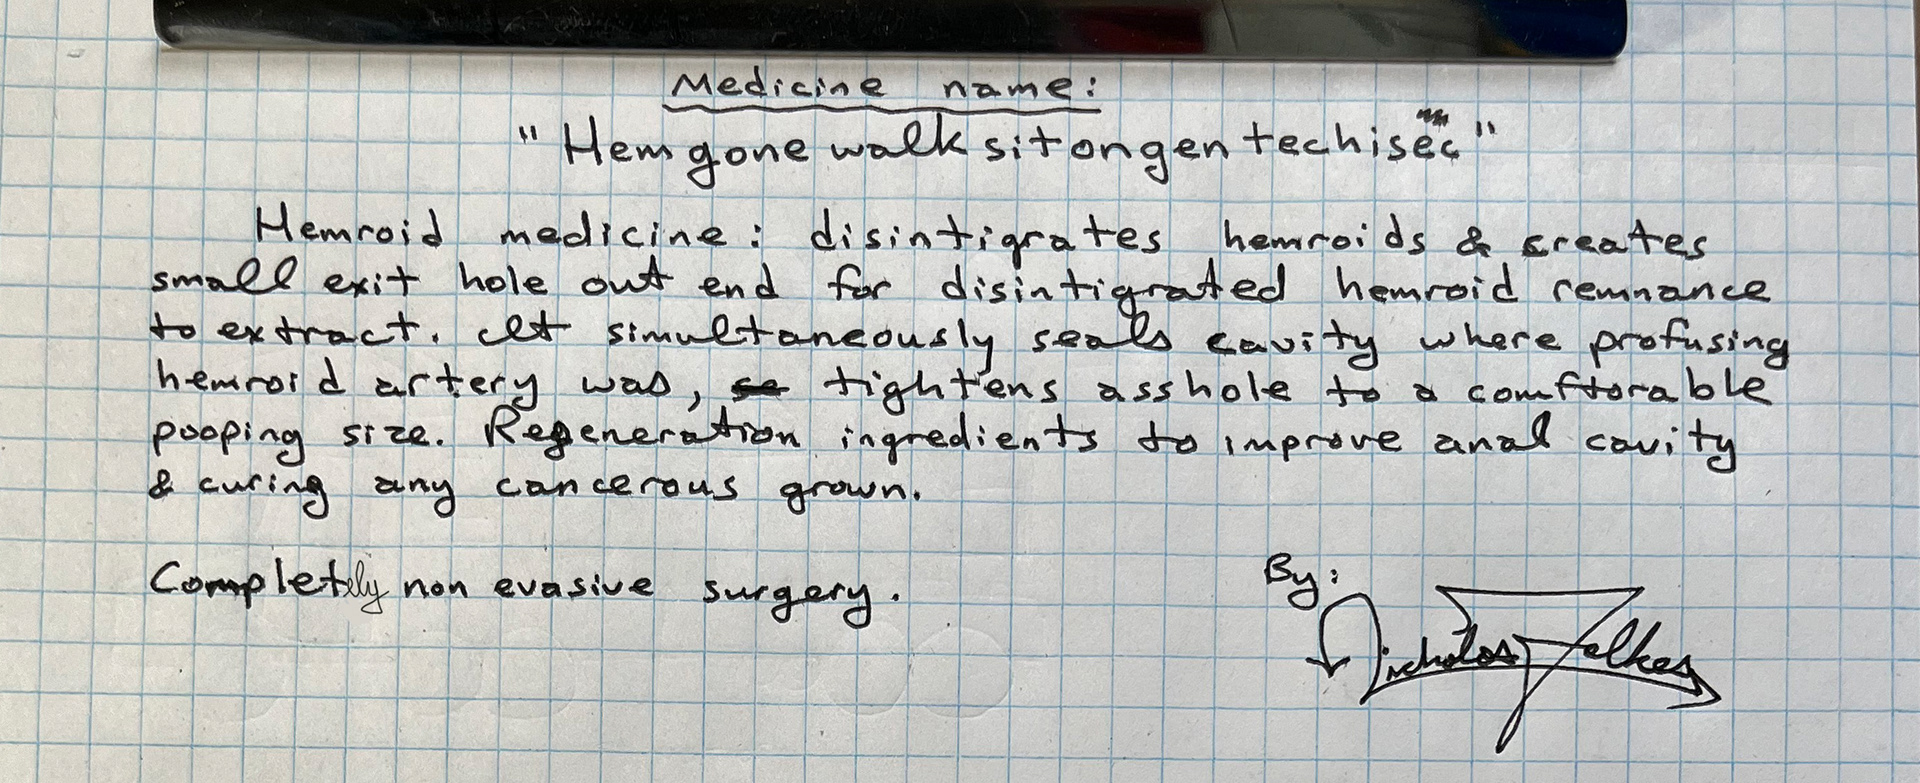 Medicine name:
"Hemgonewalksitongentechisec"
Hemroid medicine: disintigrates hemroids & creates
small exit hole out end for disintigrated hemroid remnance
to extract. It simultaneously seals cavity where profusing
hemroid artery was, tightens asshole to a comftorable
pooping size. Regeneration ingredients to improve anal cavity
& curing any cancerous grown.
Completely non evasive surgery.
By:
Nicholas